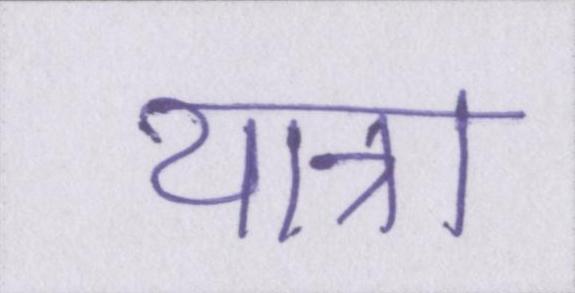 यात्रा